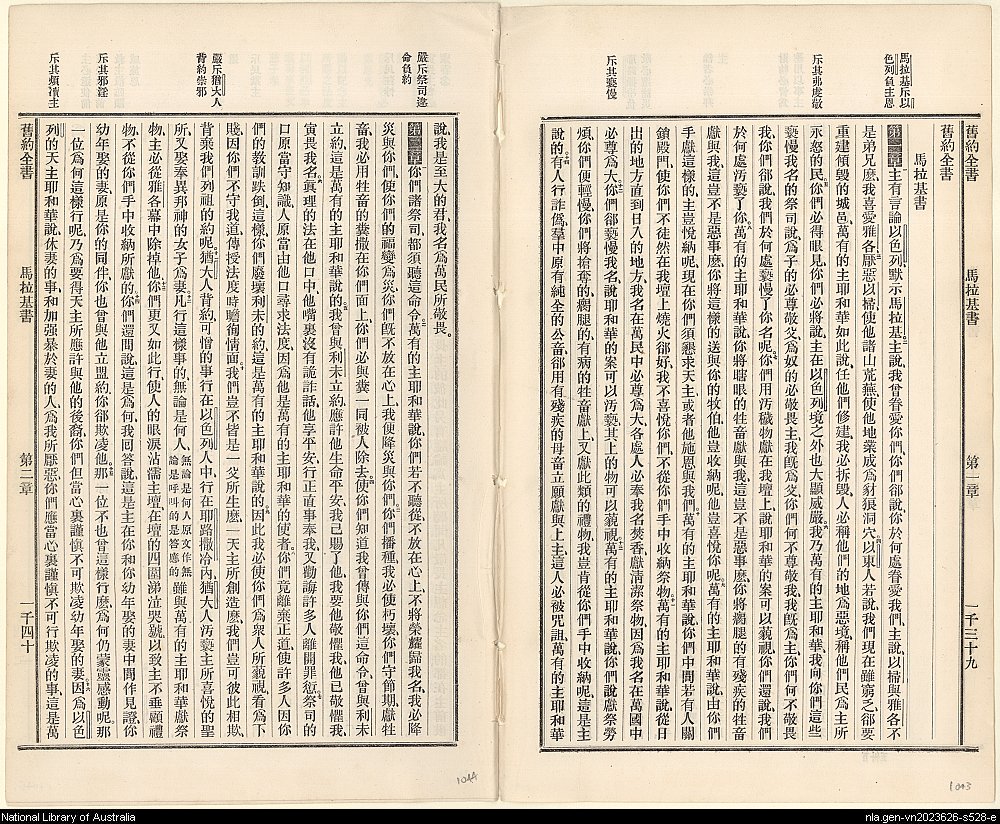 馬拉基斥以
色列負主恩
斥其弗虔敬
斥其褻慢
舊約全書 馬拉基書 第一章 一千三十九
舊約全書
馬拉基書
第一章主有言論以色列默示馬拉基主說我曾眷愛你們你們卻說你於何處眷愛我們主說以掃與雅各不
是弟兄麽我喜愛雅各厭惡以掃使他諸山荒蕪使他地業成爲豺狼洞穴以東人若說我們現在雖窮乏卻要
重建傾毀的城邑萬有的主耶和華如此說任他們修建我必拆毀人必稱他們的地爲惡境稱他們民爲主所
永怒的民你們必得眼見你們必將說主在以色列境之外也大顯威嚴我乃萬有的主耶和華我向你們這些
褻慢我名的祭司說爲子的必尊敬父爲奴的必敬畏主我旣爲父你們何不尊敬我我旣爲主你們何不敬畏
我你們卻說我們於何處褻慢了你名呢你們用汚穢物獻在我壇上說耶和華的案可以藐視你們還說我們
於何處汚褻了你萬有的主耶和華說你將瞎眼的牲畜獻與我這豈不是惡事麽你將瘸腿的有殘疾的牲畜
獻與我這豈不是惡事麽你將這樣的送與你的牧伯他豈收納呢他豈喜悅你呢萬有的主耶和華說由你們
手中獻這樣的主豈悅納呢現在你們須懇求天主或者他施恩與我們萬有的主耶和華說你們中間若有人關
鎖殿門使你們不徒然在我壇上燒火卻好我不喜悅你們不從你們手中收納祭物萬有的主耶和華說從日
出的地方直到日入的地方我名在萬民中必尊爲大各處人必奉我名焚香獻清潔祭物因爲我名在萬國中
必尊爲大你們卻褻慢我名說耶和華的案可以汚褻其上的物可以藐視萬有的主耶和華說你們說獻祭勞
煩你們便輕慢你們將搶奪的瘸腿的有病的牲畜獻上又獻此類的禮物我豈肯從你們手中收納呢這是主
說的有人行詐僞羣中原有純全的公畜卻用有殘疾的母畜立願獻與上主這人必被咒詛萬有的主耶和華
1043
嚴斥祭司違
命負約
嚴斥猶大人
背約崇邪
斥其邪淫
斥其煩瀆主
說我是至大的君我名爲萬民所敬畏
第二章你們諸祭司都須聽這命令萬有的主耶和華說你們若不聽從不放在心上不將榮耀歸我名我必降
災與你們使你們的福變爲災你們旣不放在心上我便降災與你們你們播種我必使朽壞你們守節期獻牲
畜我必用牲畜的糞撒在你們面上你們必與糞一同被人除去使你們知道我曾傳與你們這命令曾與利未
立約這是萬有的主耶和華說的我曾與利未立約應許他生命平安我已賜了他我要他敬懼我他已敬懼我
寅畏我名眞理的法在他口中他嘴裏沒有詭詐話他享平安行正直事奉我又勸誨許多人離開罪愆祭司的
口原當守知識人原當由他口尋求法度因爲他是萬有的主耶和華的使者你們竟離棄正道使許多人因你
們的教訓跌倒這樣你們廢壞利未的約這是萬有的主耶和華說的因此我必使你們爲衆人所藐視看爲下
賤因你們不守我道傳授法度時瞻徇情面我們豈不皆是一父所生麽一天主所創造麽我們豈可彼此相欺
背棄我們列祖的約呢猶大人背約可憎的事行在以色列人中行在耶路撒冷內猶大人汚褻主所喜悅的聖
所又娶奉異邦神的女子爲妻凡行這樣事的無論是何人無論是何人原文作無論是呼叫的是答應的雖與萬有的主耶和華獻祭
物主必從雅各幕中除掉他你們更又如此行使人的眼淚沾濡主壇在壇的四圍涕泣哭號以致主不垂顧禮
物不從你們手中收納所獻的你們還問說這是爲何我回答說這是主在你和你幼年娶的妻中間作見證你
幼年娶的妻原是你的同伴你也曾與他立盟約你卻欺凌他那一位不也曾這樣行麽爲何仍蒙靈感動呢那
一位爲何這樣行呢乃爲要得天主所應許與他的後裔你們但當心裏謹愼不可欺凌幼年娶的妻因爲以色
列的天主耶和華說休妻的事和加强暴於妻的人爲我所厭惡你們應當心裏謹愼不可行欺凌的事這是萬
舊約全書 馬拉基書 第二章 一千四十
1044
National Library of Australia
nla.gen-vn2023626-s528-e